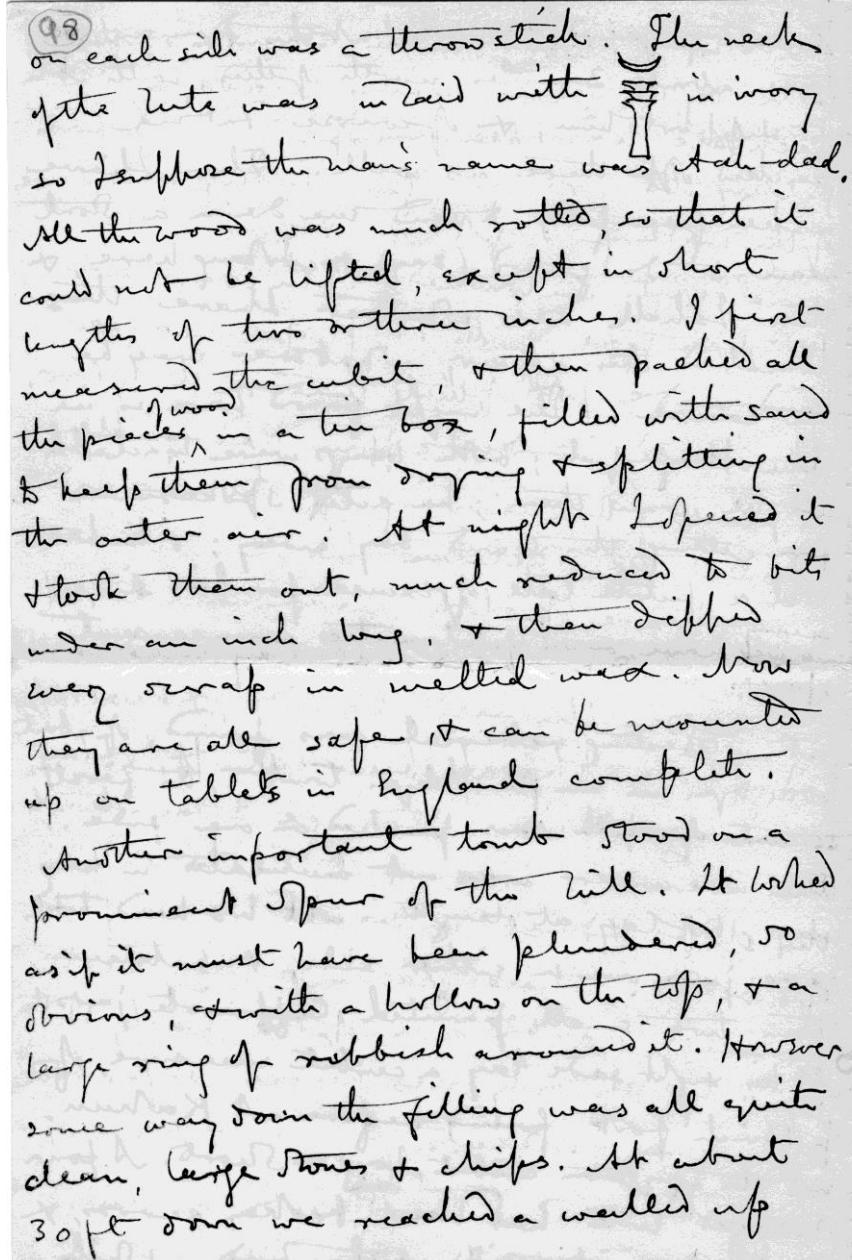 98
on each side was a throwstick. The neck
of the lute was inlaid with in ivory
so I suppose the man's name was Aah-dad.
All the wood was much rotted, so that it
could not be lifted, except in short
lengths of two or three inches. I first
measured the cubit, & then packed all
the pieces of wood, in a tin box, filled with sand
to keep them from drying & splitting in
the outer air. At night I opened it
& took them out, much reduced to bits
under an inch long, & then dipped
every scrap in melted wax. Now
they are all safe, & can be mounted
up on tablets in England complete.
Another important tomb stood on a
prominent spur of the hill. It looked
as if it must have been plundered, so
obvious, & with a hollow on the top, & a
large ring of rubbish around it. However
some way down the filling was all quite
clean, large stones & chips. At about
30 ft down we reached a walled up